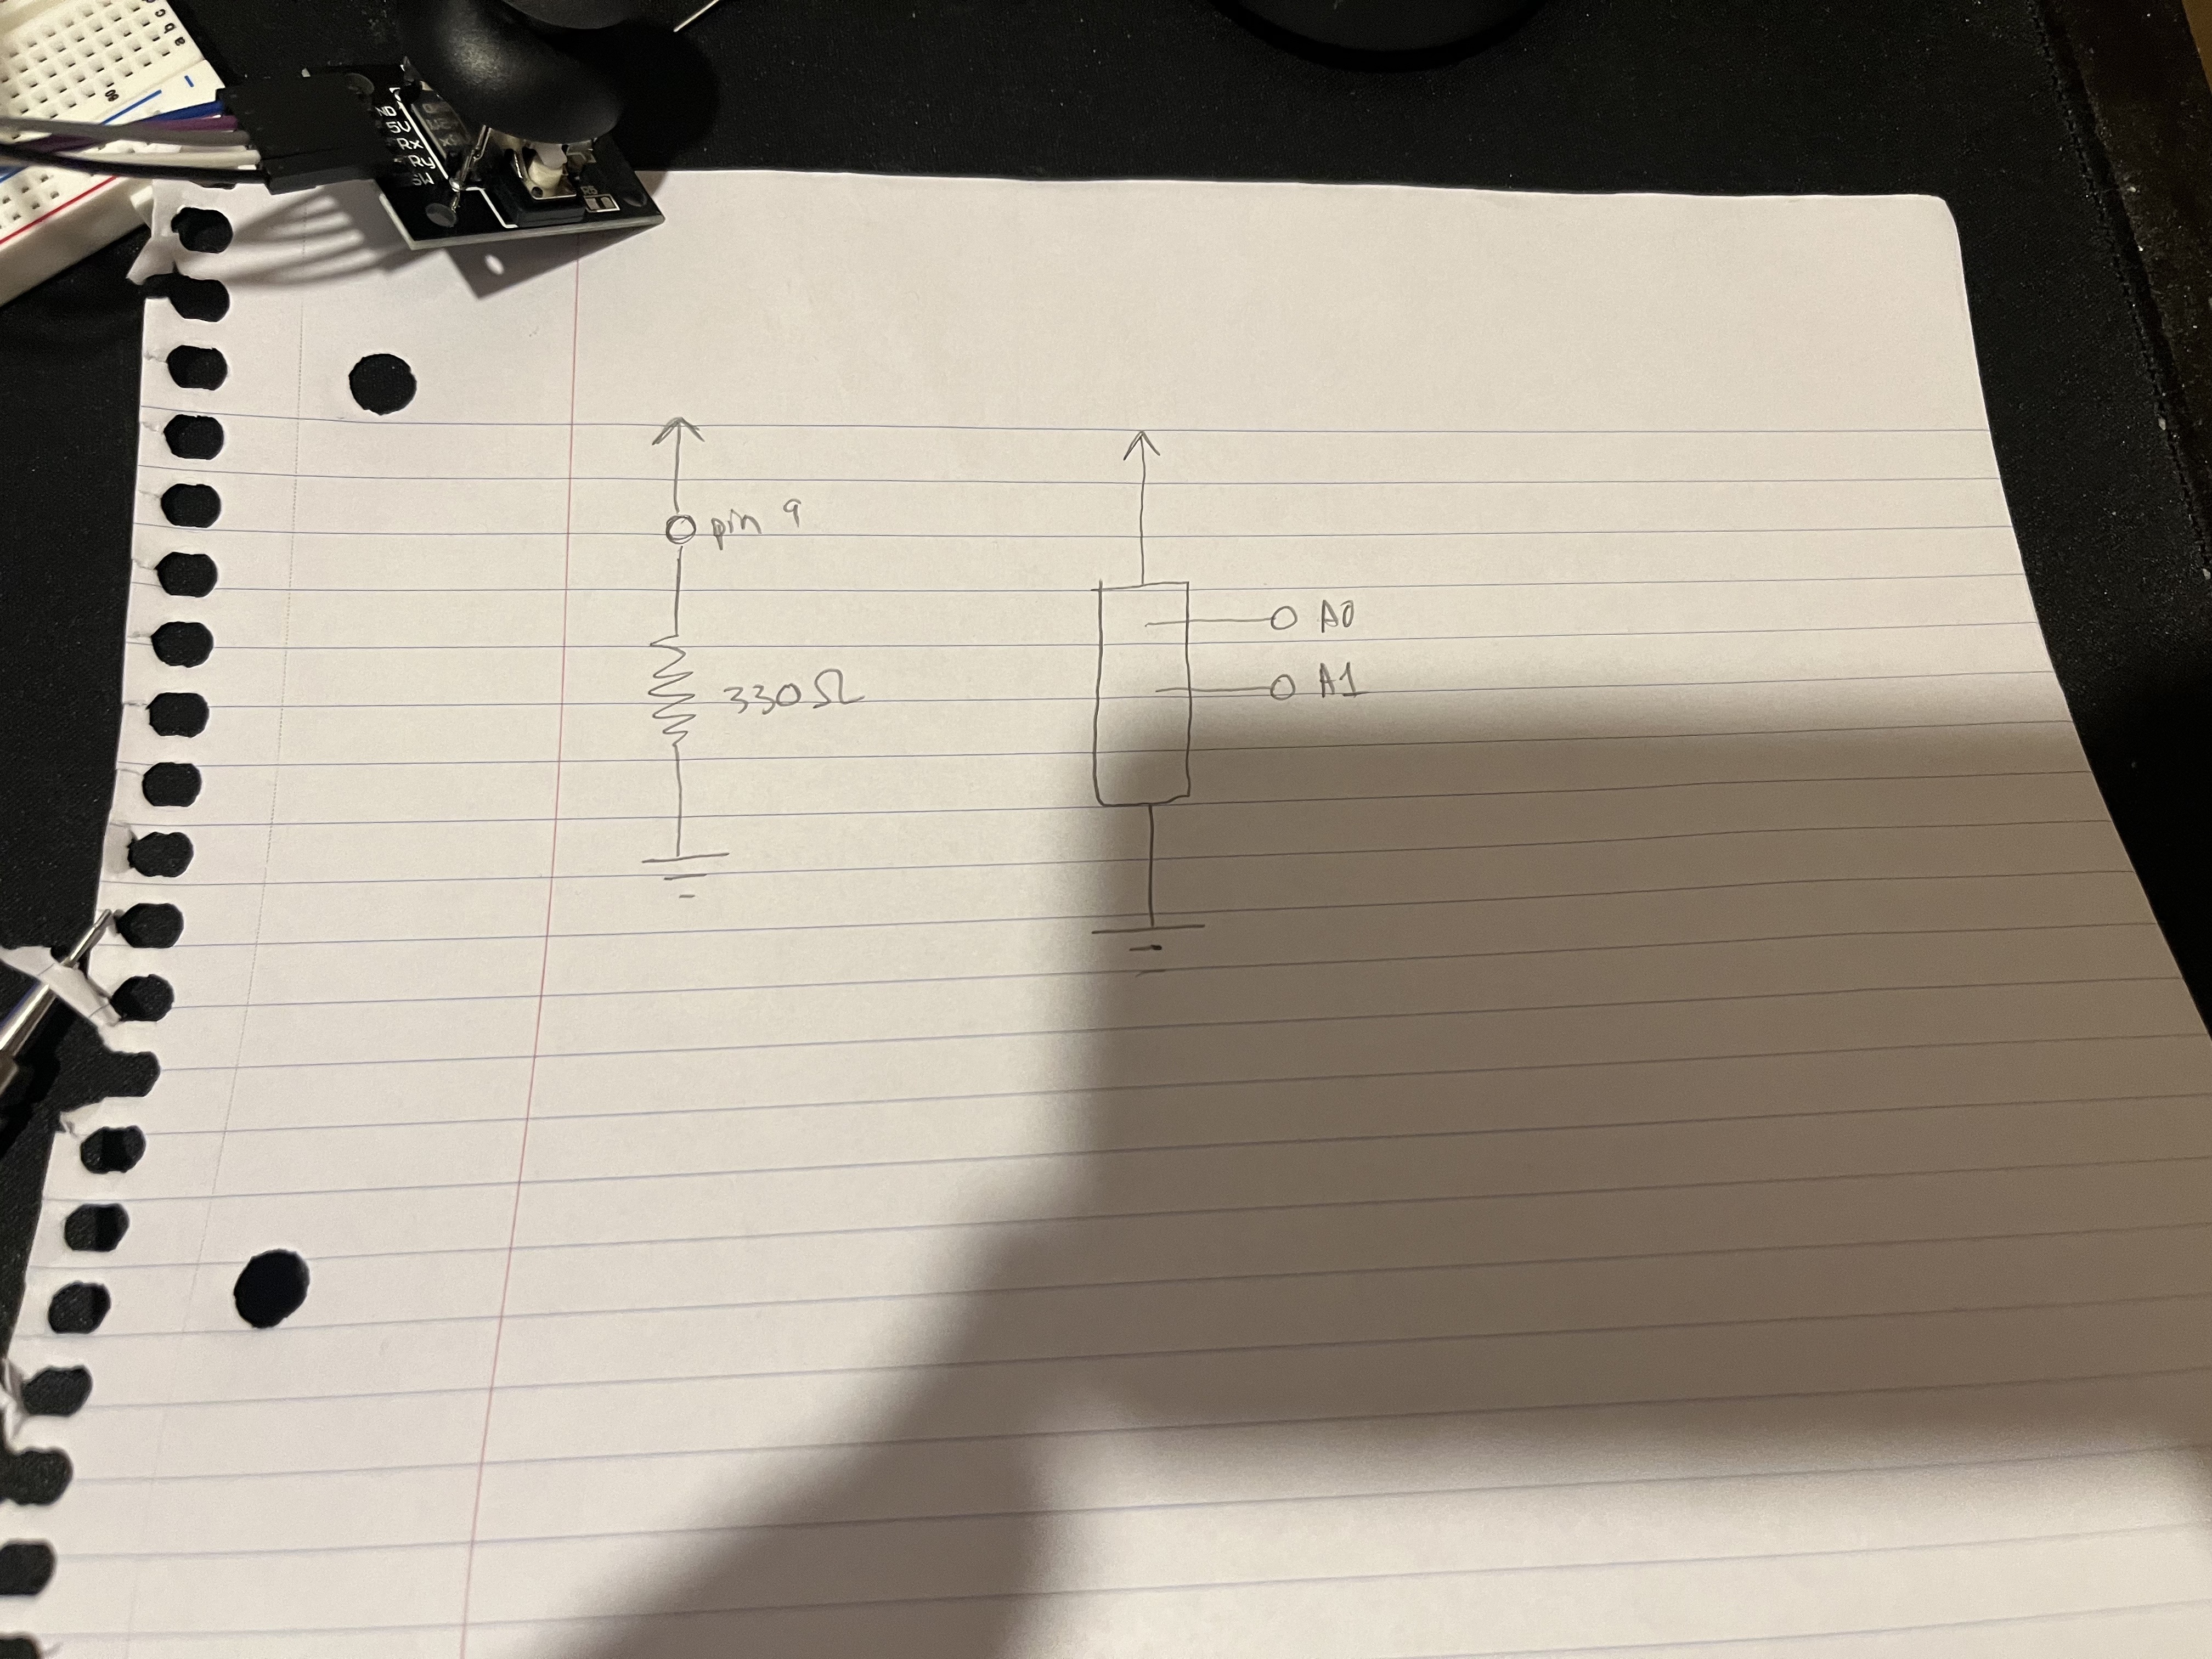 ND
5V
Rx
Ry
SW
pin 9
330Ω
A0
A1